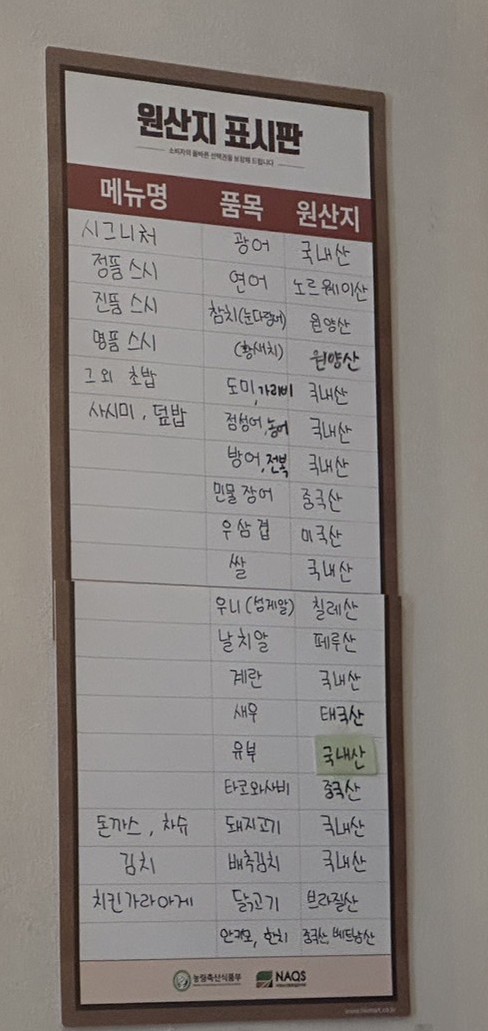 원산지 표시판
소비자의 올바른 선택권을 보장해 드립니다
메뉴명 품목 원산지
시그니처 광어 국내산
정품 스시 연어 노르웨이산
진품 스시 참치(눈다랑어) 원양산
명품 스시 (황새치) 원양산
그외 초밥 도미,가리비 국내산
사시미, 덮밥 점성어,농어 국내산
방어,전복 국내산
민물장어 중국산
우삼겹 미국산
쌀 국내산
우니(성게알) 칠레산
날치알 페루산
계란 국내산
새우 태국산
유부 국내산
타코와사비 중국산
돈까스, 차슈 돼지고기 국내산
김치 배추김치 국내산
치킨가라아게 닭고기 브라질산
한치 중국산, 베트남산
농림축산식품부 NAQS